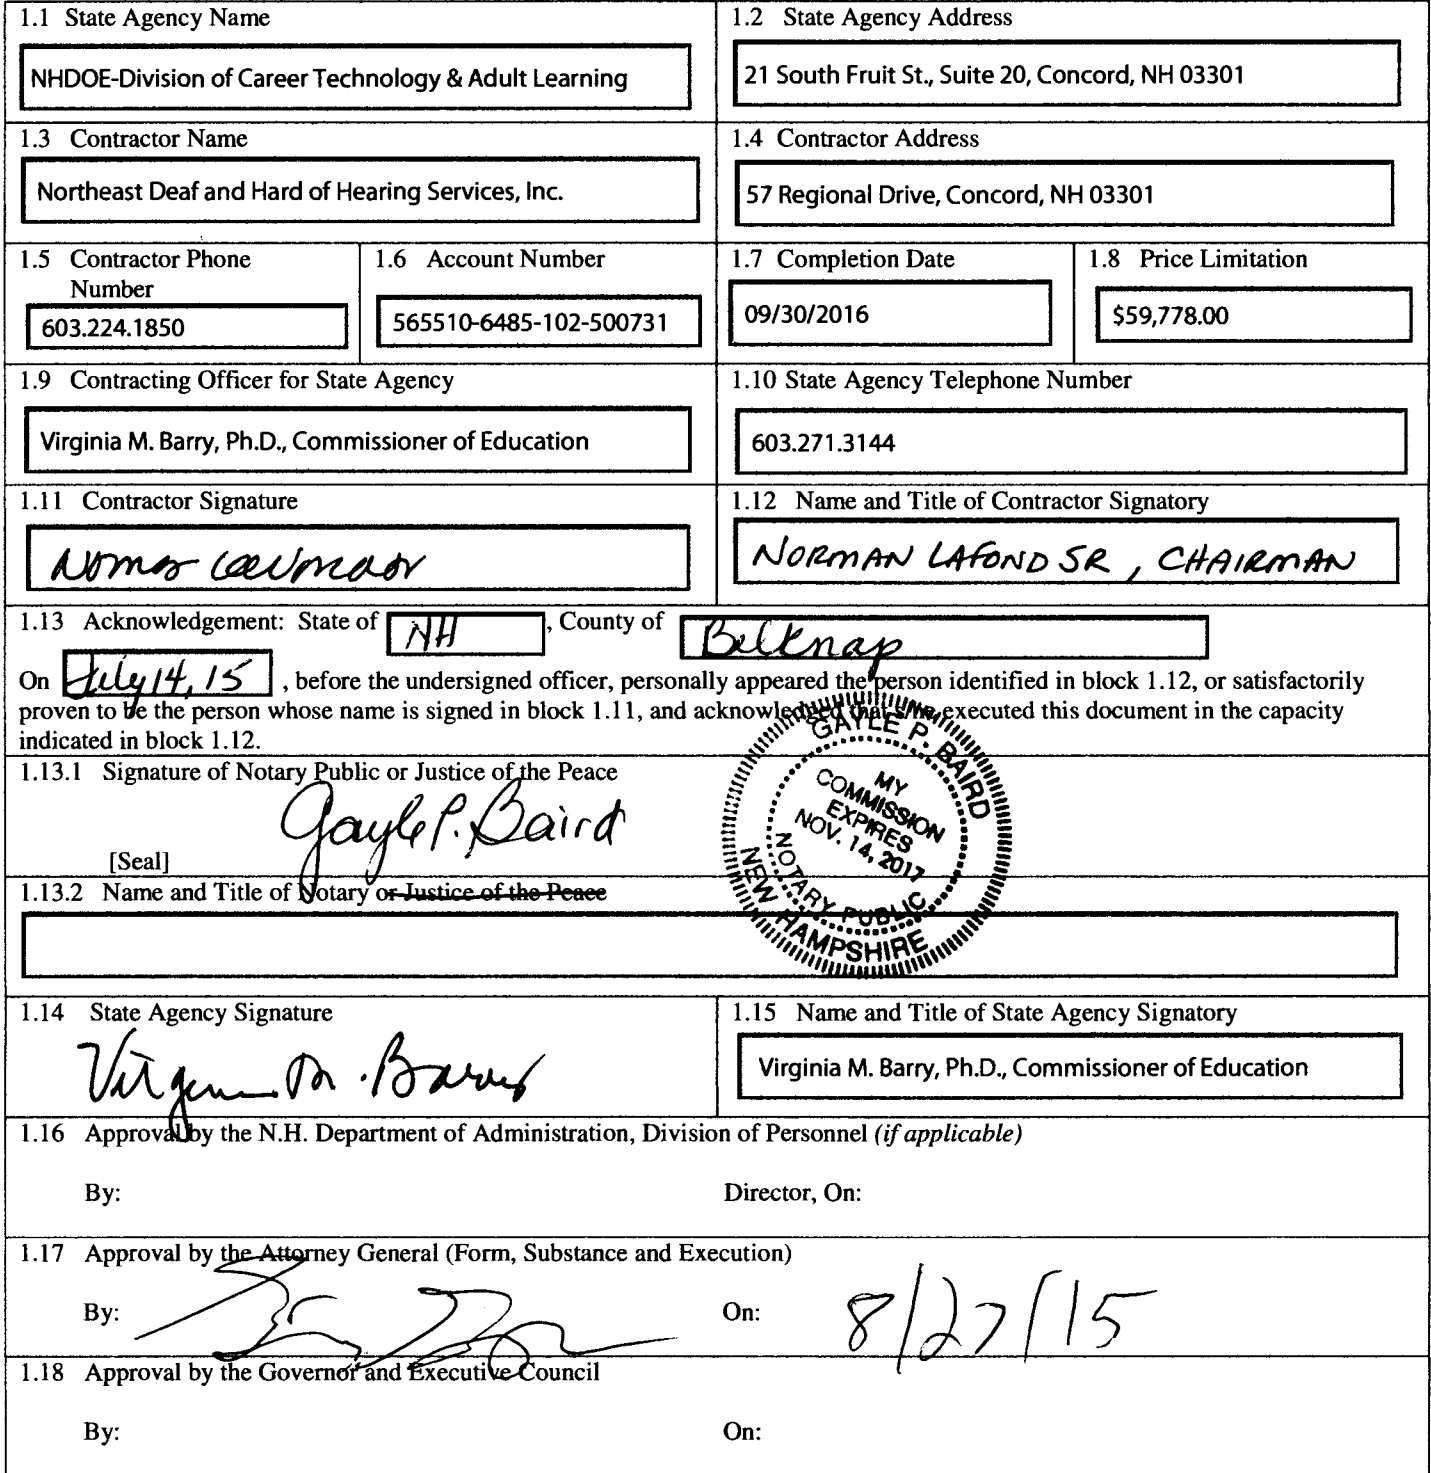 1.1 State Agency Name
NHDOE-Division of Career Technology & Adult Learning
1.2 State Agency Address
21 South Fruit St., Suite 20, Concord, NH 03301
1.3 Contractor Name
Northeast Deaf and Hard of Hearing Services, Inc.
1.4 Contractor Address
57 Regional Drive, Concord, NH 03301
1.5 Contractor Phone
Number
603.224.1850
1.6 Account Number
565510-6485-102-500731
1.7 Completion Date
09/30/2016
1.8 Price Limitation
$59,778.00
1.9 Contracting Officer for State Agency
Virginia M. Barry, Ph.D., Commissioner of Education
1.10 State Agency Telephone Number
603.271.3144
1.11 Contractor Signature
1.12 Name and Title of Contractor Signatory
NORMAN LAFOND SR, CHAIRMAN
1.13 Acknowledgement: State of NH, County of Belknap
On July 14, 15, before the undersigned officer, personally appeared the person identified in block 1.12, or satisfactorily
proven to be the person whose name is signed in block 1.11, and acknowledged that executed this document in the capacity
indicated in block 1.12.
1.13.1 Signature of Notary Public or Justice of the Peace
Gayle P. Baird
[Seal]
GAYLE P. BAIRD
MY
COMMISSION
EXPIRES
NOV. 14, 2017
NOTARY PUBLIC
NEW HAMPSHIRE
1.13.2 Name and Title of Notary or Justice of the Peace
1.14 State Agency Signature
Virginia M. Barry
1.15 Name and Title of State Agency Signatory
Virginia M. Barry, Ph.D., Commissioner of Education
1.16 Approval by the N.H. Department of Administration, Division of Personnel (if applicable)
By:
Director, On:
1.17 Approval by the Attorney General (Form, Substance and Execution)
By:
On: 8/27/15
1.18 Approval by the Governor and Executive Council
By:
On: